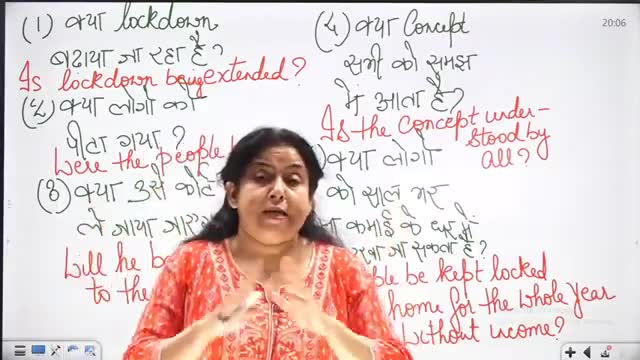 (1) क्या lockdown
बढाया जा रहा है?
Is lockdown being extended?
(2) क्या लोगो को
पीटा गया?
Were the people
(3) क्या उसे
ले जाया
Will he
to the
(4) क्या Concept
सभी को समझ
में आता है?
Is the concept under-
stood by
all?
क्या लोगो
को साल भर
कमाई के घर में
जा सकता है?
be kept locked
home for the whole year
without income?
20:06